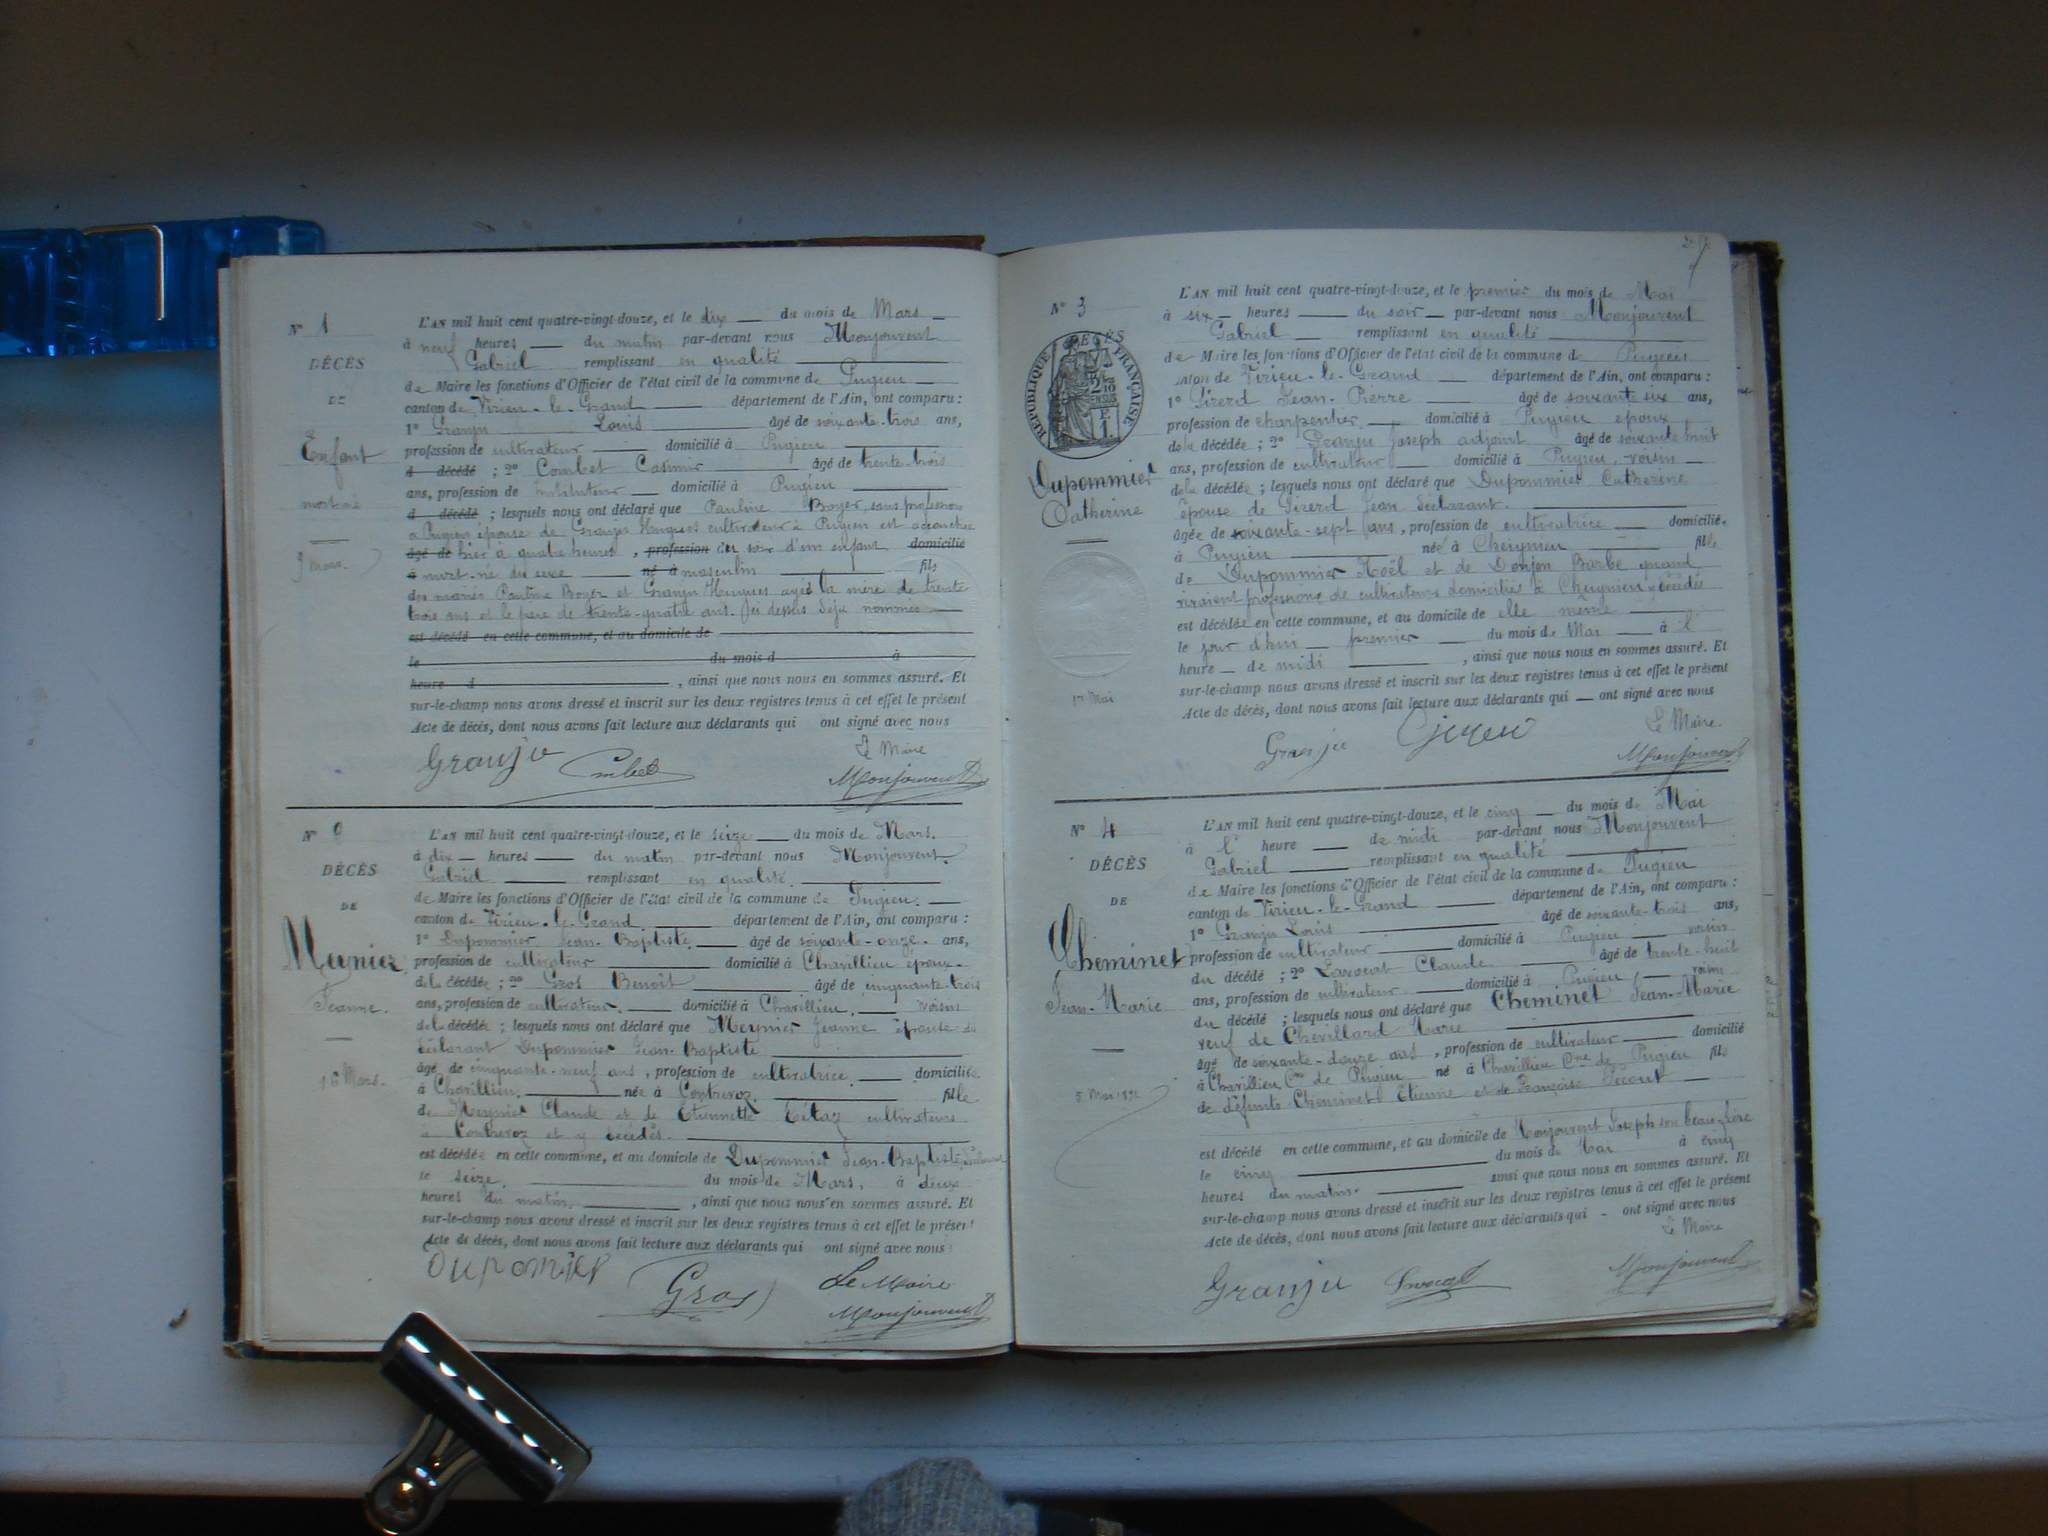 N° 1
DÉCÈS
DE
Enfant
mort-né
9 Mars.
L'AN mil huit cent quatre-vingt-douze, et le dix du mois de Mars
à neuf heures du matin par-devant nous Monjouvent
Gabriel remplissant en qualité
de Maire les fonctions d'Officier de l'état civil de la commune de Pugieu
canton de Virieu-le-Grand département de l'Ain, ont comparu :
1° Granju Louis âgé de soixante-trois ans,
profession de cultivateur domicilié à Pugieu
d décédé ; 2° Combet Casimir âgé de trente-trois
ans, profession de instituteur domicilié à Pugieu
d décédé ; lesquels nous ont déclaré que Pauline Boyer, sans profession
à Pugieu épouse de Granju Hugues cultivateur à Pugieu est accouchée
âgé de hier à quatre heures, profession du soir d'un enfant domicilié
à mort-né du sexe né à masculin fils
des mariés Pauline Boyer et Granju Hugues âgés la mère de trente
trois ans et le père de trente-quatre ans. ci dessus déjà nommés
est décédé en cette commune, et au domicile de
le du mois d à
heure d , ainsi que nous nous en sommes assuré. Et
sur-le-champ nous avons dressé et inscrit sur les deux registres tenus à cet effet le présent
Acte de décès, dont nous avons fait lecture aux déclarants qui ont signé avec nous
Le Maire
Granju Combet Monjouvent
N°
DÉCÈS
DE
Meynier
Jeanne.
16 Mars.
L'AN mil huit cent quatre-vingt-douze, et le seize du mois de Mars.
à dix heures du matin par-devant nous Monjouvent
Gabriel remplissant en qualité.
de Maire les fonctions d'Officier de l'état civil de la commune de Pugieu.
canton de Virieu-le-Grand département de l'Ain, ont comparu :
1° Dupommier Jean-Baptiste. âgé de soixante-onze. ans,
profession de cultivateur domicilié à Chavillieu époux.
de la décédée ; 2° Gros Benoît âgé de cinquante-trois
ans, profession de cultivateur. domicilié à Chavillieu. voisin
de la décédée ; lesquels nous ont déclaré que Meynier Jeanne épouse du
déclarant Dupommier Jean-Baptiste
âgée de cinquante-neuf ans, profession de cultivatrice. domiciliée
à Chavillieu. née à Contrevoz. fille
de Meynier Claude et de Etiennette cultivateurs
à Contrevoz et y décédés.
est décédée en cette commune, et au domicile de Dupommier Jean-Baptiste déclarant
le seize. du mois de Mars, à deux
heures du matin. , ainsi que nous nous en sommes assuré. Et
sur-le-champ nous avons dressé et inscrit sur les deux registres tenus à cet effet le présent
Acte de décès, dont nous avons fait lecture aux déclarants qui ont signé avec nous
Dupomier Gros Le Maire
Monjouvent
N° 3
DÉCÈS
RÉPUBLIQUE FRANÇAISE
Dupommier
Catherine
1er Mai
L'AN mil huit cent quatre-vingt-douze, et le premier du mois de Mai
à six heures du soir par-devant nous Monjouvent
Gabriel remplissant en qualité
de Maire les fonctions d'Officier de l'état civil de la commune de Pugieu
canton de Virieu-le-Grand département de l'Ain, ont comparu :
1° Girerd Jean-Pierre âgé de soixante six ans,
profession de charpentier domicilié à Pugieu époux
de la décédée ; 2° Granju Joseph adjoint âgé de soixante huit
ans, profession de cultivateur domicilié à Pugieu, voisin
de la décédée ; lesquels nous ont déclaré que Dupommier Catherine
épouse de Girerd Jean déclarant.
âgée de soixante-sept ans, profession de cultivatrice domiciliée
à Pugieu née à Cheignieu fille
de Dupommier Noël et de Donjon Barbe quand
vivaient professions de cultivateurs domiciliés à Cheignieu y décédés
est décédée en cette commune, et au domicile de elle même
le jour d'hui premier du mois de Mai à l'
heure de midi , ainsi que nous nous en sommes assuré. Et
sur-le-champ nous avons dressé et inscrit sur les deux registres tenus à cet effet le présent
Acte de décès, dont nous avons fait lecture aux déclarants qui ont signé avec nous
Le Maire.
Granju Monjouvent
N° 4
DÉCÈS
DE
Cheminet
Jean-Marie
5 Mai 1892
L'AN mil huit cent quatre-vingt-douze, et le cinq du mois de Mai
à l' heure de midi par-devant nous Monjouvent
Gabriel remplissant en qualité
de Maire les fonctions d'Officier de l'état civil de la commune de Pugieu
canton de Virieu-le-Grand département de l'Ain, ont comparu :
1° Granju Louis âgé de soixante-trois ans,
profession de cultivateur domicilié à Pugieu voisin
du décédé ; 2° Lavocat Claude âgé de trente-huit
ans, profession de cultivateur domicilié à Pugieu, voisin
du décédé ; lesquels nous ont déclaré que Cheminet Jean-Marie
veuf de Chevillard Marie
âgé de soixante-douze ans, profession de cultivateur domicilié
à Chavillieu Cne de Pugieu né à Chavillieu Cne de Pugieu fils
de défunts Cheminet Etienne et de Françoise
est décédé en cette commune, et au domicile de Monjouvent Joseph son beau-frère
le cinq du mois de Mai à cinq
heures du matin. ainsi que nous nous en sommes assuré. Et
sur-le-champ nous avons dressé et inscrit sur les deux registres tenus à cet effet le présent
Acte de décès, dont nous avons fait lecture aux déclarants qui ont signé avec nous
Le Maire
Granju Lavocat Monjouvent